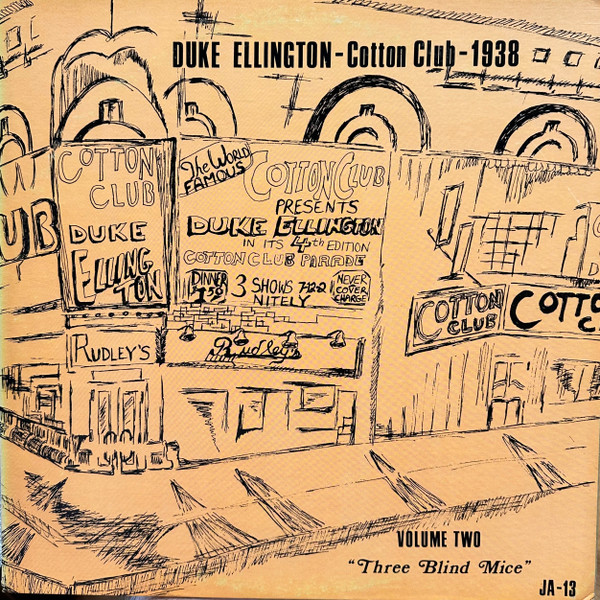 DUKE ELLINGTON-Cotton Club-1938
COTTON
CLUB
DUKE
ELLING
TON
The WORLD
FAMOUS
COTTON CLUB
PRESENTS
DUKE ELLINGTON
IN ITS 4th EDITION
COTTON CLUB PARADE
DINNER
1.50
3 SHOWS 7-12-2
NITELY
NEVER
COVER
CHARGE
UB
RUDLEY'S
Rudley's
COTTON
CLUB
COTTO
C
VOLUME TWO
"Three Blind Mice"
JA-13